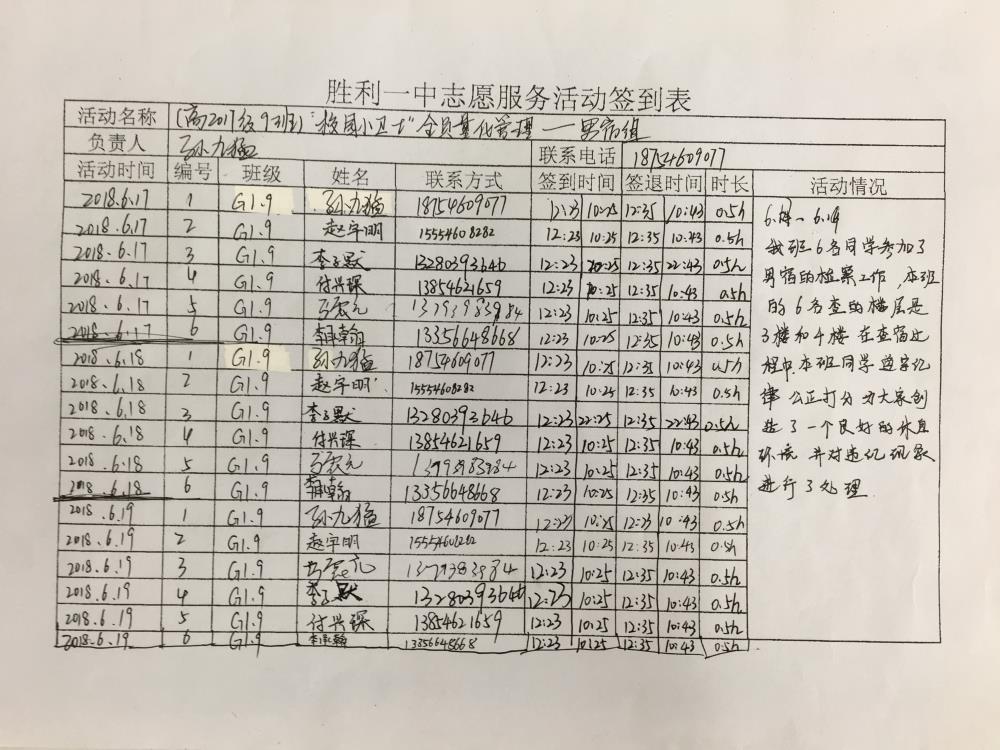 胜利一中志愿服务活动签到表
活动名称 (高2017级9班) "校园小卫士" 全员量化管理 — 男宿组
负责人 孙九猛 联系电话 18754609077
活动时间 编号 班级 姓名 联系方式 签到时间 签退时间 时长 活动情况
2018.6.17 1 G1.9 孙九猛 18754609077 12:23 10:25 12:35 10:43 0.5h
2018.6.17 2 G1.9 赵宇明 15554608282 12:23 10:25 12:35 10:43 0.5h
2018.6.17 3 G1.9 李子默 13280393646 12:23 10:25 12:35 22:43 0.5h
2018.6.17 4 G1.9 付兴琛 13854621659 12:23 10:25 12:35 10:43 0.5h
2018.6.17 5 G1.9 12:23 10:25 12:35 10:43 0.5h
2018.6.17 6 G1.9 13356648668 12:23 10:25 12:35 10:43 0.5h
2018.6.18 1 G1.9 孙九猛 18754609077 12:23 10:25 12:35 10:43 0.5h
2018.6.18 2 G1.9 赵宇明 15554608282 12:23 10:25 12:35 10:43 0.5h
2018.6.18 3 G1.9 李子默 13280393646 12:23 22:25 12:35 22:43 0.5h
2018.6.18 4 G1.9 付兴琛 13854621659 12:23 10:25 12:35 10:43 0.5h
2018.6.18 5 G1.9 12:23 10:25 12:35 10:43 0.5h
2018.6.18 6 G1.9 13356648668 12:23 10:25 12:35 10:43 0.5h
2018.6.19 1 G1.9 孙九猛 18754609077 12:23 10:25 12:35 10:43 0.5h
2018.6.19 2 G1.9 赵宇明 15554608282 12:23 10:25 12:35 10:43 0.5h
2018.6.19 3 G1.9 12:23 10:25 12:35 10:43 0.5h
2018.6.19 4 G1.9 李子默 13280393646 12:23 10:25 12:35 10:43 0.5h
2018.6.19 5 G1.9 付兴琛 13854621659 12:23 10:25 12:35 10:43 0.5h
2018.6.19 6 G1.9 13356648668 12:23 10:25 12:35 10:43 0.5h
我班6名同学参加了
男宿的检察工作，本班
的6名查的楼层是
3楼和4楼 在查宿过
程中 本班同学遵守纪
律 公正打分 为大家创
造了一个良好的休息
环境 并对违纪现象
进行了处理.